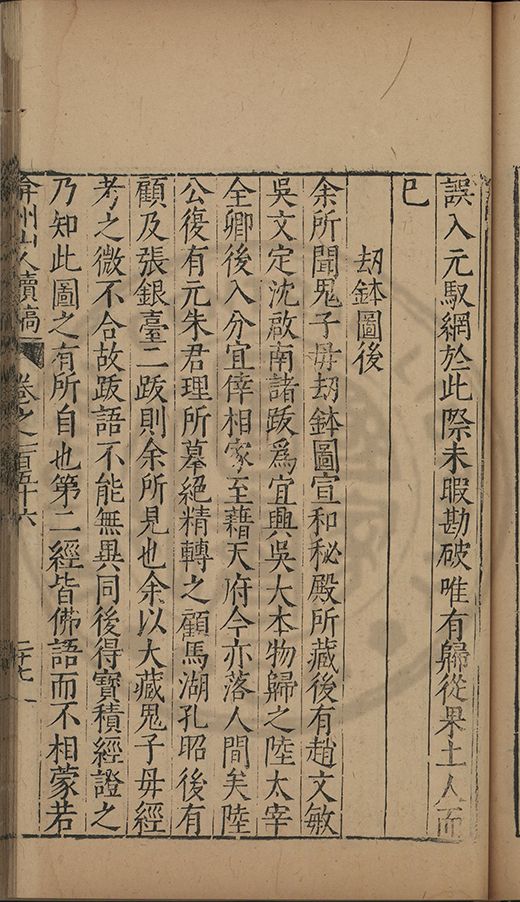 誤入元馭網於此際未暇勘破唯有歸從果土人而
已
刼鉢圖後
余所聞鬼子毋刼鉢圖宣和秘殿所藏後有趙文敏
吳文定沈啟南諸跋為宜興吳大本物歸之陸太宰
全卿後入分宜倖相家至藉天府今亦落人間矣陸
公復有元朱君理所摹絕精轉之顧馬湖孔昭後有
顧及張銀臺二跋則余所見也余以大藏鬼子毋經
考之微不合故跋語不能無異同後得寶積經證之
乃知此圖之有所自也第二經皆佛語而不相蒙若
弇州山人續稿 卷之一百五十六 二十七